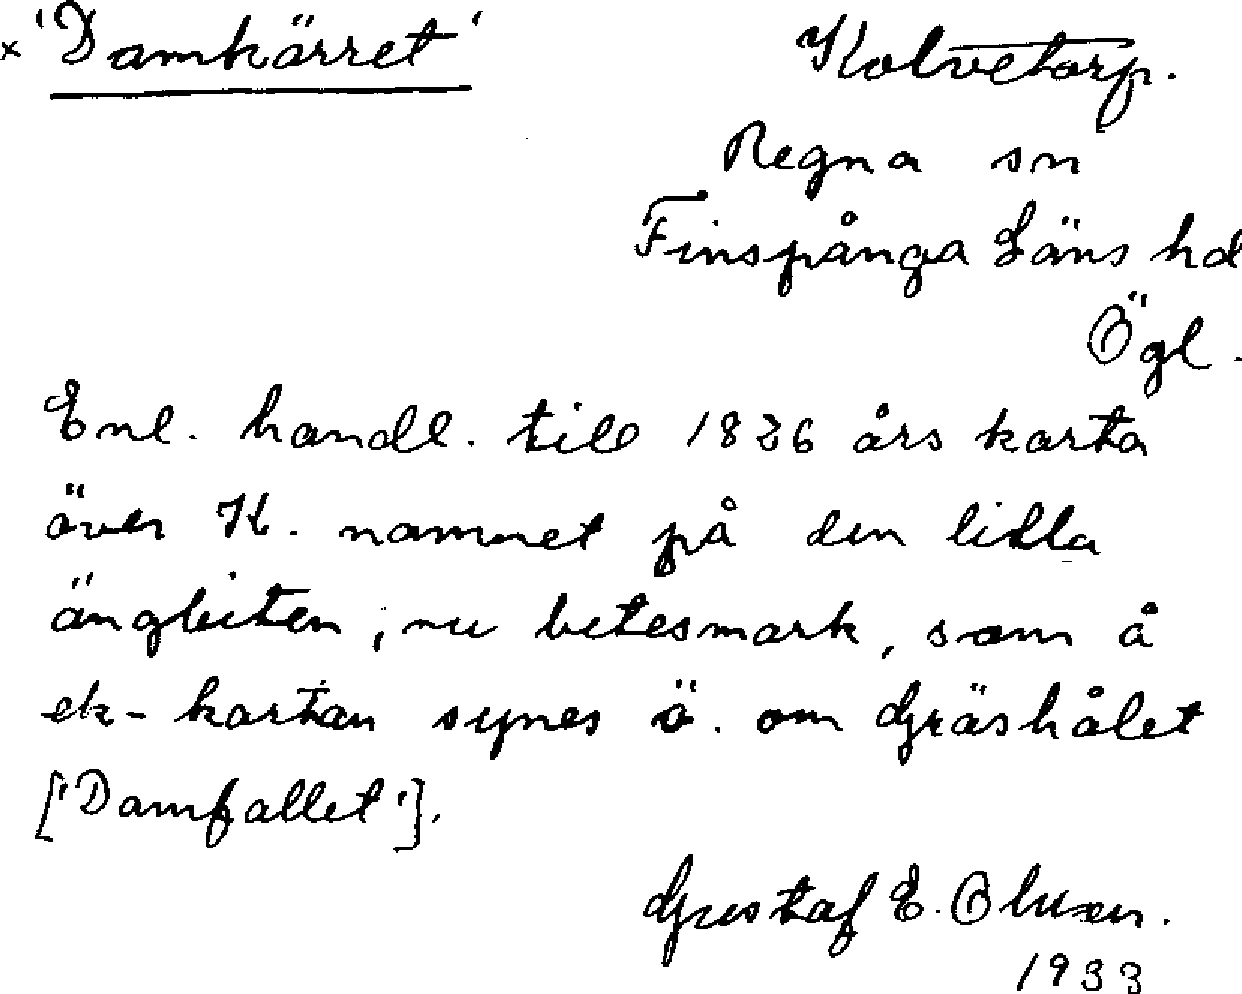 × 'Damkärret'
Kolvetorp.
Regna sn
Finspånga Läns hd
Ögl.
Enl. handl. till 1826 års karta
över K. namnet på den lilla
ängbiten, nu betesmark, som å
ek-kartan synes ö. om Gräshålet
['Damfallet'].
Gustaf E. Olsson.
1933